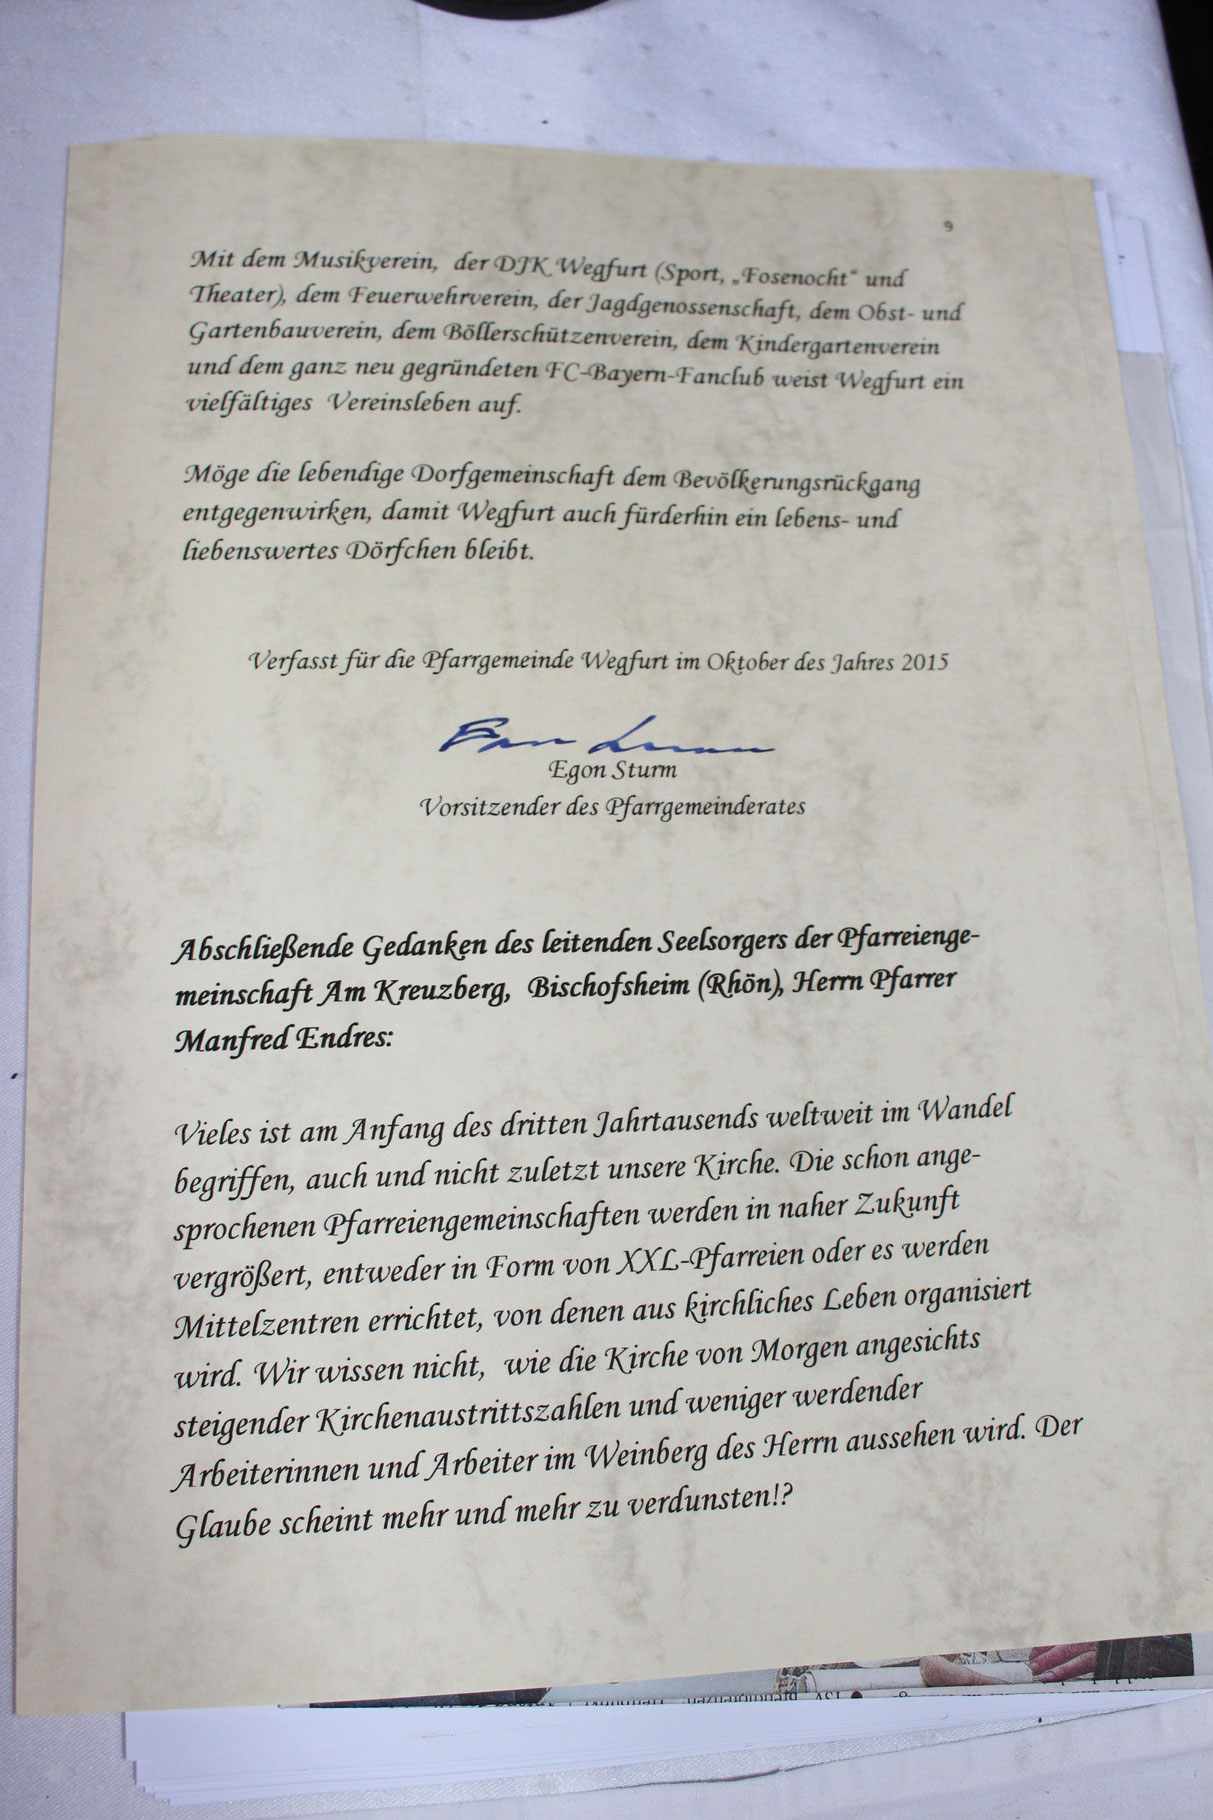 9
Mit dem Musikverein, der DJK Wegfurt (Sport, „Fosenocht“ und
Theater), dem Feuerwehrverein, der Jagdgenossenschaft, dem Obst- und
Gartenbauverein, dem Böllerschützenverein, dem Kindergartenverein
und dem ganz neu gegründeten FC-Bayern-Fanclub weist Wegfurt ein
vielfältiges Vereinsleben auf.
Möge die lebendige Dorfgemeinschaft dem Bevölkerungsrückgang
entgegenwirken, damit Wegfurt auch fürderhin ein lebens- und
liebenswertes Dörfchen bleibt.
Verfasst für die Pfarrgemeinde Wegfurt im Oktober des Jahres 2015
Egon Sturm
Vorsitzender des Pfarrgemeinderates
Abschließende Gedanken des leitenden Seelsorgers der Pfarreienge-
meinschaft Am Kreuzberg, Bischofsheim (Rhön), Herrn Pfarrer
Manfred Endres:
Vieles ist am Anfang des dritten Jahrtausends weltweit im Wandel
begriffen, auch und nicht zuletzt unsere Kirche. Die schon ange-
sprochenen Pfarreiengemeinschaften werden in naher Zukunft
vergrößert, entweder in Form von XXL-Pfarreien oder es werden
Mittelzentren errichtet, von denen aus kirchliches Leben organisiert
wird. Wir wissen nicht, wie die Kirche von Morgen angesichts
steigender Kirchenaustrittszahlen und weniger werdender
Arbeiterinnen und Arbeiter im Weinberg des Herrn aussehen wird. Der
Glaube scheint mehr und mehr zu verdunsten!?